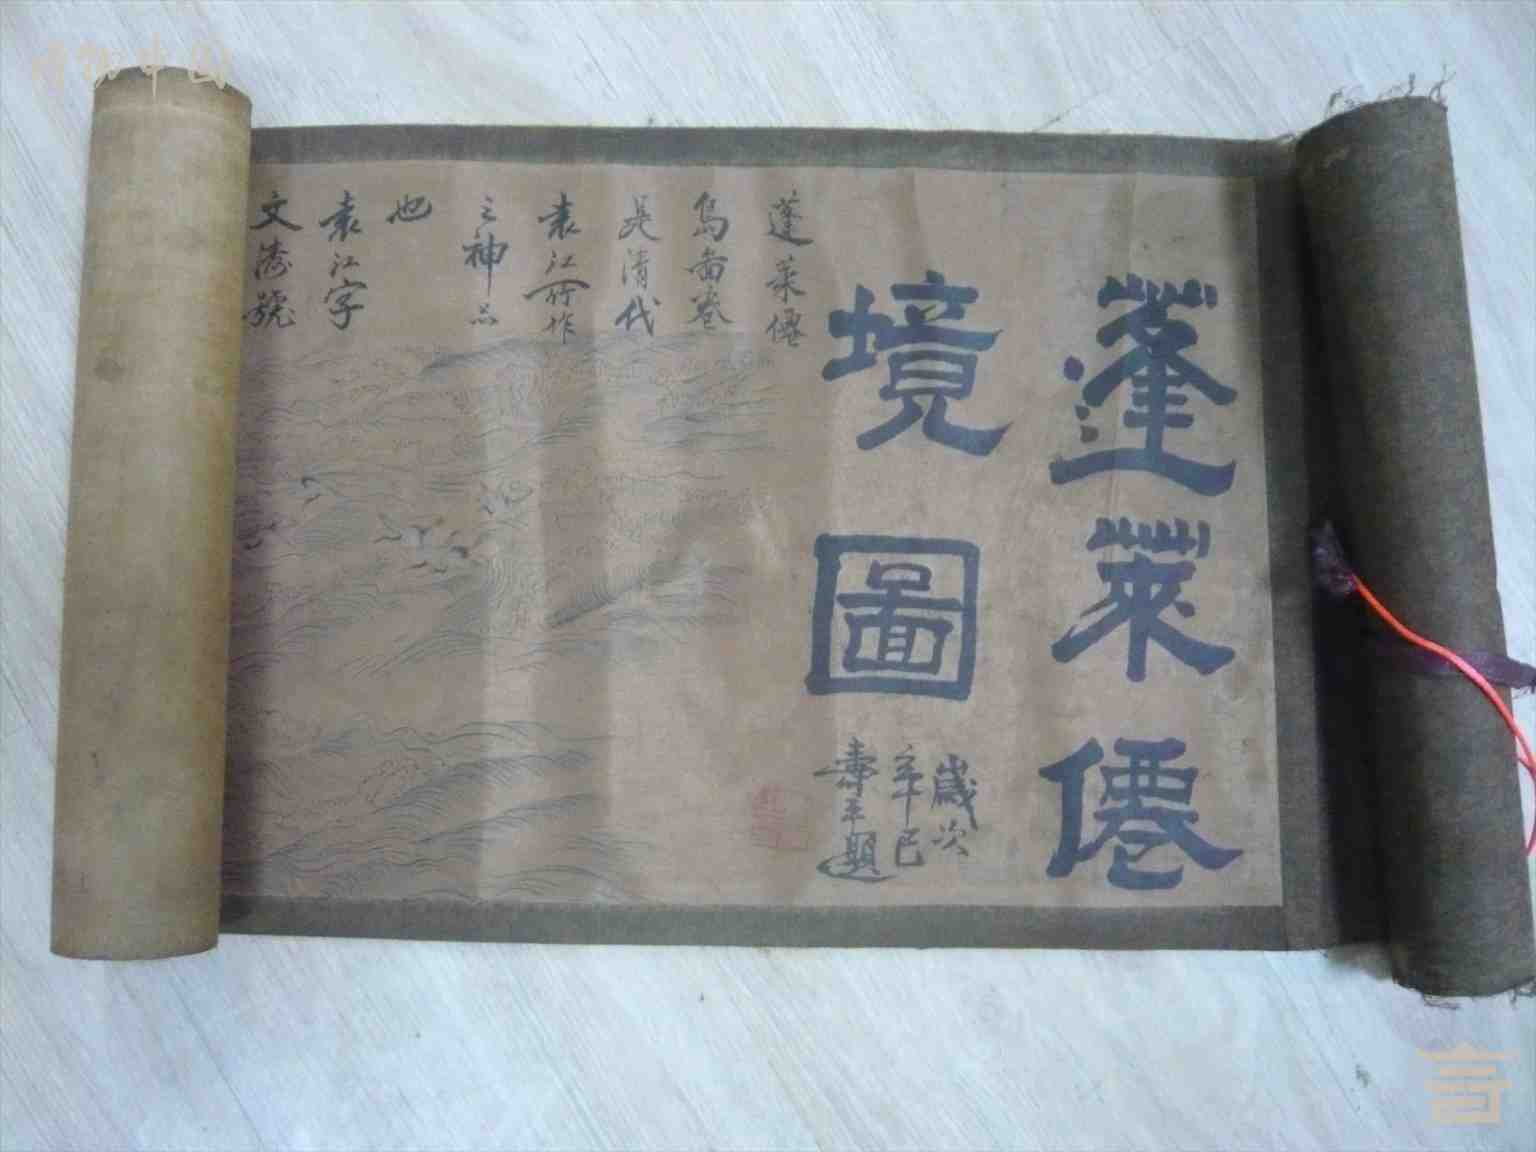 蓬萊僊
境圖
歲次
辛巳
壽平題
蓬萊僊
島畨卷
是清代
袁江所作
之神品
也
袁江字
文濤號